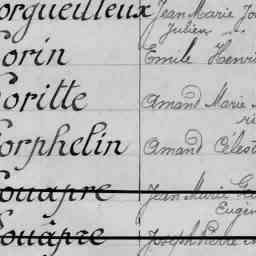 orgueilleux Jean Marie Jo
Julien
orin Emile Henri
oritte Amand Marie
orphelin Amand Célest
ouapre Jean Marie
Eugèn
ouapre Joseph Pierre